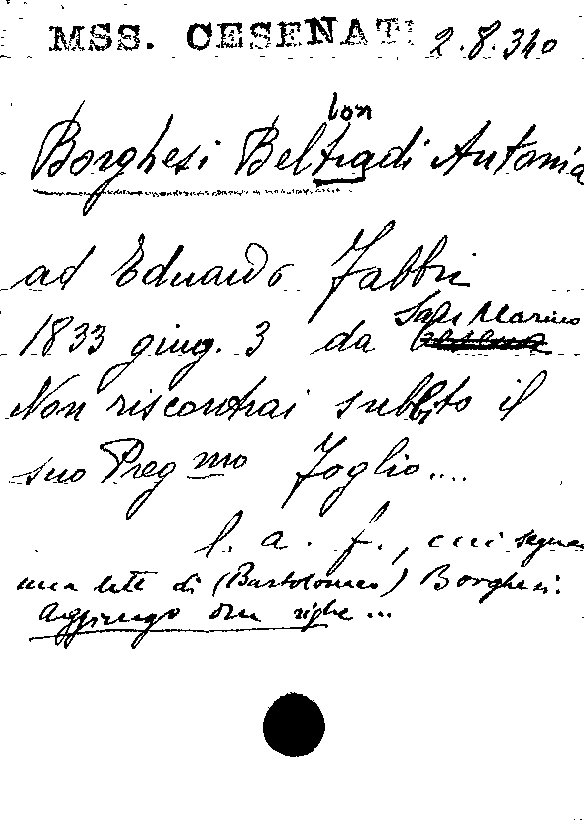 MSS. CESENATI 2.8.340
bon
Borghesi Beltradi Antonia
ad Eduardo Fabbri
San Marino
1833 giug. 3 da Cesena
Non riscontrai subbito il
suo Preg mo Foglio....
l. a. f., cui segue
una lett. di (Bartolomeo) Borghesi:
Aggiungo due righe...